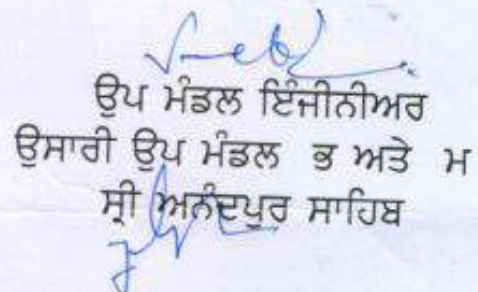 ਉਪ ਮੰਡਲ ਇੰਜੀਨੀਅਰ
ਉਸਾਰੀ ਉਪ ਮੰਡਲ ਭ ਅਤੇ ਮ
ਸ੍ਰੀ ਅਨੰਦਪੁਰ ਸਾਹਿਬ